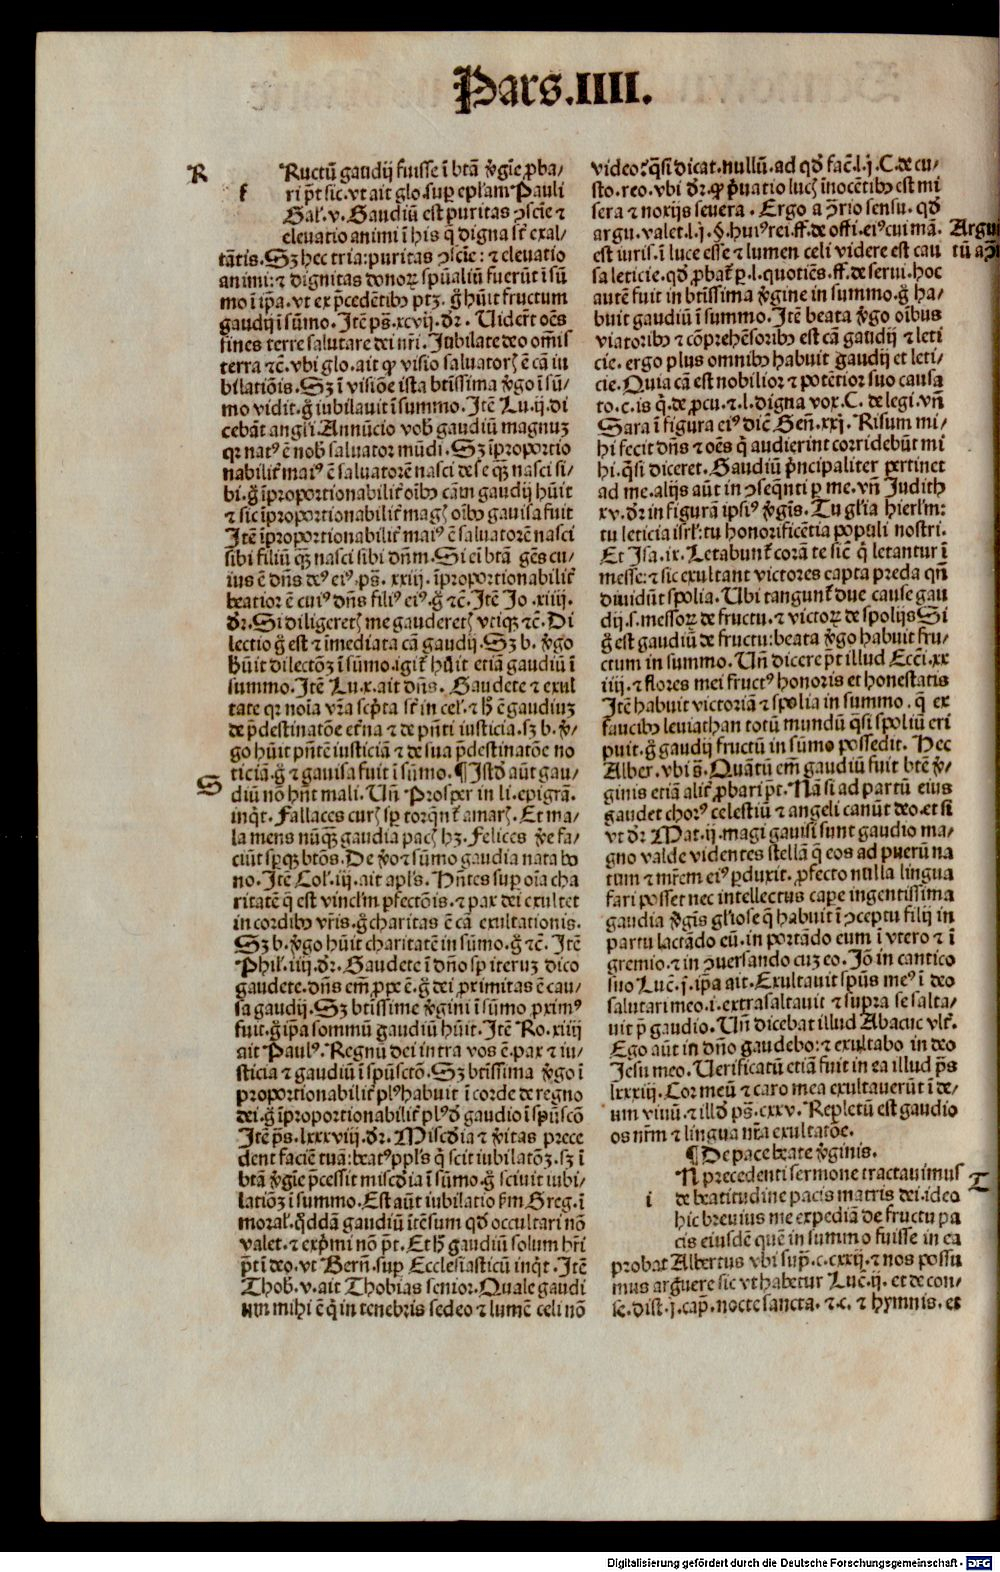 Pars.IIII.
R
f
Ructū gaudij fuisse ī btā v̄gīe ꝓba/
ri p̄t sic. vt ait glo. sup epl̄am Pauli
Gal̄. v. Gaudiū est puritas ꝯsciē ⁊
eleuatio animi ī his q̄ digna sr̄t exal/
tātis. Sꝫ hec tria: puritas ꝯsciē: ⁊ eleuatio
animi: ⁊ dignitas donoꝝ spūaliū fuerūt ī sū
mo ī ip̄a. vt ex p̄cedētibꝰ ptꝫ. g̊ hūit fructum
gaudij ī sūmo. Itē ps̄. xcvij. dr̄. Uider̄t oēs
fines terre salutare dei nr̄i. Iubilate deo om̄is
terra ⁊c̄. vbi glo. ait ꝙ visio saluatorꝭ ē cā iu
bilatiōis. Sꝫ ī visiōe ista btīssima v̄go ī sū/
mo vidit. g̊ iubilauit ī summo. Itē Lu. ij. di
cebāt angli Annūcio vob̄ gaudiū magnuꝫ
qr natꝰ ē nob̄ saluator mūdi. Sꝫ īproportio
nabilit̄ maiꝰ ē saluatorē nasci de se qꝫ nasci si/
bi. g̊ īproportionabilit̄ oībꝰ cām gaudij hūit
⁊ sic īproportionabilit̄ magꝭ oībꝰ gauisa fuit
Itē īproportionabilit̄ maiꝰ ē saluatorē nasci
sibi filiū qꝫ nasci sibi dn̄m. Si ei btā gēs cu/
ius ē dn̄s deꝰ eiꝰ. ps̄. xxiij. īproportionabilit̄
beatior ē cuiꝰ dn̄s filiꝰ eiꝰ. g̊ ⁊c̄. Itē Jo. xiiij.
dr̄. Si diligeretꝭ me gauderetꝭ vtiqꝫ ⁊c̄. Di
lectio g̊ est ⁊ īmediata cā gaudij. Sꝫ b. v̄go
hūit dilectōꝫ ī sūmo. igit̄ hūit etiā gaudiū ī
summo. Itē Lu. x. ait dn̄s. Gaudete ⁊ exul
tate qr noīa vr̄a scp̄ta sr̄t in cel̄. ⁊ h̄ ē gaudiuꝫ
de p̄destinatōe et̄na ⁊ de pn̄ti iusticia. sꝫ b. v̄/
go hūit pn̄tē iusticiā ⁊ de sua p̄destinatōe no
S
ticiā. g̊ ⁊ gauisa fuit ī sūmo. ¶ Istd̄ aūt gau/
diū nō hn̄t mali. Un̄ Prosper in li. epigrā.
inq̄t. Fallaces curꝭ sp̄ torqn̄t amarꝭ. Et ma/
la mens nūqꝫ gaudia pacꝭ hꝫ. Felices v̄e fa/
ciūt sp̄qꝫ btōs. De v̄o ⁊ sūmo gaudia nata bo
no. Itē Col̄. iij. ait apl̄s. Hn̄tes sup oīa cha
ritatē q̄ est vincl̄m pfectōis. ⁊ pax dei exultet
in cordibꝰ vr̄is. g̊ charitas ē cā exultationis.
Sꝫ b. v̄go hūit charitatē in sūmo. g̊ ⁊c̄. Itē
Phil̄. iiij. dr̄. Gaudete ī dn̄o sp̄ iteruꝫ dico
gaudete. dn̄s em̄ ꝓpe ē. g̊ dei ꝓximitas ē cau/
sa gaudij. Sꝫ btīssime v̄gini ī sūmo ꝓximꝰ
fuit. g̊ ip̄a sommū gaudiū hūit. Itē Ro. xiiij
ait Paulꝰ. Regnū dei intra vos ē. pax ⁊ iu/
sticia ⁊ gaudiū ī spūsctō. Sꝫ btīssima v̄go ī
proportionabilit̄ plꝰ habuit ī corde de regno
dei. g̊ īproportionabilit̄ plꝰ d̄ gaudio ī spūscō
Itē ps̄. lxxxviij. dr̄. Miscd̄ia ⁊ v̄itas prece
dent faciē tuā: beatꝰ ppl̄s q̄ scit iubilatōꝫ. sꝫ ī
btā v̄gīe p̄cessit miscd̄ia ī sūmo. g̊ sciuit iubi/
latiōꝫ ī summo. Est aūt iubilatio fm̄ Greg. ī
moral̄. qd̄dā gaudiū ītēsum qd̄ occultari nō
valet. ⁊ exp̄mi nō p̄t. Et h̄ gaudiū solum hr̄i
p̄t ī deo. vt Bern̄. sup Ecclesiasticū inq̄t. Itē
Thob̄. v. ait Thobias senior. Quale gaudi
um mihi ē q̄ in tenebris sedeo ⁊ lumē celi nō
video? q̄si dicat. nullū. ad qd̄ fac̄. l. ij. C. de cu/
sto. reo. vbi dr̄. ꝙ p̄uatio lucꝭ īnocētibꝰ est mi
sera ⁊ noxijs seuera. Ergo a ꝯrio sensu. qd̄
argu. valet. l. j. §. huiꝰ rei. ff. de offi. eiꝰ cui mā.
Argu
tū a ꝯ
est iuris. ī luce esse ⁊ lumen celi videre est cau
sa leticie. qd̄ ꝓbat̄ p. l. quotiēs. ff. de serui. hoc
autē fuit in btīssima v̄gine in summo. g̊ ha/
buit gaudiū ī summo. Itē beata v̄go oībus
viatoribꝰ ⁊ cōprehēsoribꝰ est cā gaudij ⁊ leti
cie. ergo plus omnibꝰ habuit gaudij et leti/
cie. Quia cā est nobilior ⁊ potētior suo causa
to. c. is q̄. de ꝓcu. ⁊ l. digna vox. C. de legi. vn̄
Sara ī figura eiꝰ dic̄ Gen̄. xxj. Risum mi/
hi fecit dn̄s ⁊ oēs q̄ audierint corridebūt mi
hi. q̄si diceret. Gaudiū p̄ncipaliter pertinet
ad me. alijs aūt in ꝯseq̄nti p me. vn̄ Judith
xv. dr̄ in figurā ipsiꝰ v̄gīs. Tu gl̄ia hierl̄m:
tu leticia isrl̄: tu honorificētia populi nostri.
Et Isa. ix. Letabunt̄ corā te sic̄ q̄ letantur ī
messe: ⁊ sic exultant victores capta preda qn̄
diuidūt spolia. Ubi tangunt̄ due cause gau
dij. s. messoꝝ de fructu. ⁊ victoꝝ de spolijs Si
g̊ est gaudiū de fructu: beata v̄go habuit fru/
ctum in summo. Un̄ dicere p̄t illud Ecc̄i. xx
iiij. ⁊ flores mei fructꝰ honoris et honestatis
Itē habuit victoriā ⁊ spolia in summo. q̄ ex
faucibꝰ leuiathan totū mundū q̄si spoliū eri
puit. g̊ gaudij fructū in sūmo possedit. Hec
Alber. vbi s̄. Quātū em̄ gaudiū fuit btē v̄/
ginis etiā alit̄ ꝓbari p̄t. Nā si ad partū eius
gaudet chorꝰ celestiū ⁊ angeli canūt deo. et si
vt dr̄ Mat. ij. magi gauisi sunt gaudio ma/
gno valde videntes stellā q̄ eos ad puerū na
tum ⁊ mr̄em eiꝰ pduxit. ꝓfecto nulla lingua
fari posset nec intellectus cape ingentissima
gaudia v̄gīs gl̄iose q̄ habuit ī ꝯceptu filij in
partu lactādo eū. in portādo eum ī vtero ⁊ ī
gremio. ⁊ in ꝯuersando cuꝫ eo. Iō in cantico
suo Luc̄. j. ip̄a ait. Exultauit spūs meꝰ ī deo
salutari meo. i. extra saltauit ⁊ supra se salta/
uit p̄ gaudio. Un̄ dicebat illud Abacuc vlt̄.
Ego aūt in dn̄o gaudebo: ⁊ exultabo in deo
Jesu meo. Uerificatū etiā fuit in ea illud ps̄
lxxxiij. Cor meū ⁊ caro mea exultauerūt ī de/
um viuū. ⁊ illd̄ ps̄. cxxv. Repletū est gaudio
os nr̄m ⁊ lingua nr̄a exultatōe.
¶ De pace beate v̄ginis.
T
i
N precedenti sermone tractauimus
de beatitudine pacis matris dei. ideo
hic breuius me expediā de fructu pa
cis eiusdē quē in summo fuisse in ea
probat Albertus vbi sup̄. c. cxxij. ⁊ nos possu
mus arguere sic vt habetur Luc̄. ij. et de con/
se. dist. j. cap̄. nocte sancta. ⁊ c. ⁊ hymnis. et
Digitalisierung gefördert durch die Deutsche Forschungsgemeinschaft - DFG